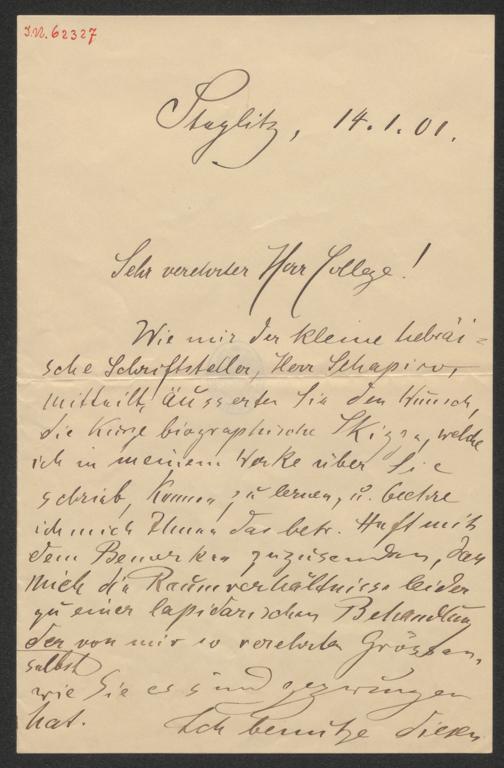 J.N. 62327
Steglitz, 14.1.01.
Sehr verehrter Herr College!
Wie mir der kleine hebräi-
sche Schriftsteller, Herr Schapiro,
mittheilt, äusserten Sie den Wunsch,
die kurze biographische Skizze, welche
ich in meinem Werke über Sie
schrieb, kennen zu lernen, u. beehre
ich mich Ihnen das betr. Heft mit
dem Bemerken zuzusenden, dass
mich die Raumverhältnisse leider
zu einer lapidarischen Behandlung
der von mir so verehrten Grössen,
selbst
wie Sie es sind gezwungen
hat. Ich benutze diesen